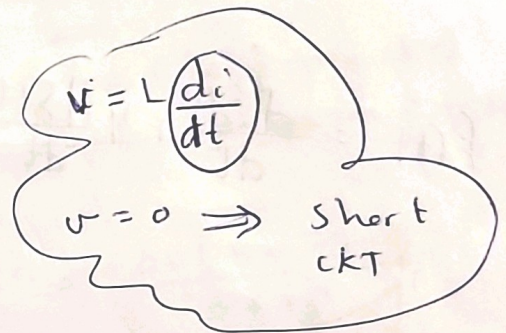 v = L di/dt
v = 0 ⇒ short
CKT